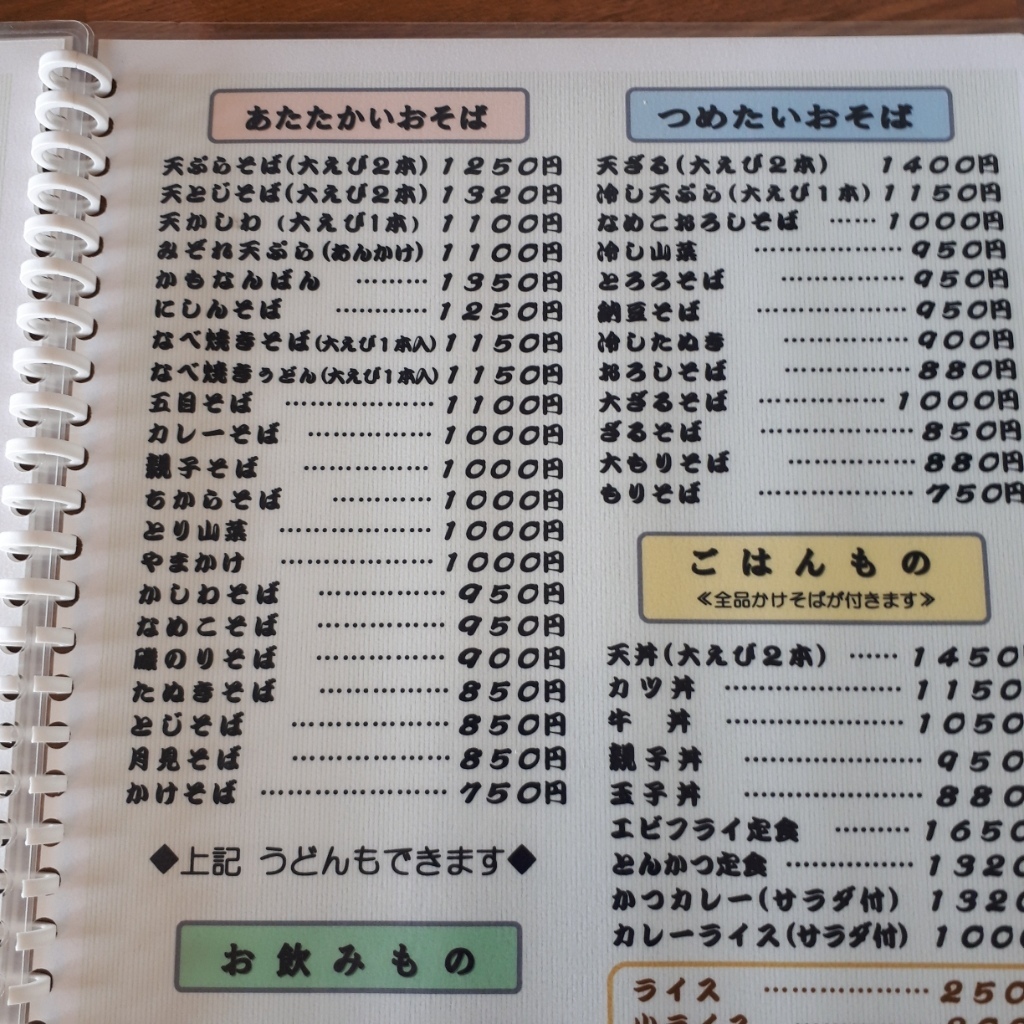 あたたかいおそば
天ぷらそば(大えび2本) 1250円
天とじそば(大えび2本) 1320円
天かしわ (大えび1本) 1100円
みぞれ天ぷら(あんかけ) 1100円
かもなんばん ……… 1350円
にしんそば ………… 1250円
なべ焼きそば(大えび1本入) 1150円
なべ焼きうどん(大えび1本入) 1150円
五目そば ……………… 1100円
カレーそば …………… 1000円
親子そば …………… 1000円
ちからそば ………… 1000円
とり山菜 ……………… 1000円
やまかけ …………… 1000円
かしわそば …………… 950円
なめこそば …………… 950円
磯のりそば …………… 900円
たぬきそば …………… 850円
とじそば ……………… 850円
月見そば ……………… 850円
かけそば ………………… 750円
◆上記 うどんもできます◆
お飲みもの
つめたいおそば
天ざる(大えび2本) 1400円
冷し天ぷら(大えび1本) 1150円
なめこおろしそば …… 1000円
冷し山菜 ……………… 950円
とろろそば …………… 950円
納豆そば ……………… 950円
冷したぬき …………… 900円
おろしそば …………… 880円
大ざるそば …………… 1000円
ざるそば ……………… 850円
大もりそば …………… 880円
もりそば ……………… 750円
ごはんもの
≪全品かけそばが付きます≫
天丼(大えび2本) …… 1450
カツ丼 ………………… 1150
牛 丼 ………………… 1050
親子丼 ………………… 950
玉子丼 ………………… 880
エビフライ定食 ……… 1650
とんかつ定食 …………… 1320
かつカレー(サラダ付) 1320
カレーライス(サラダ付) 1000
ライス ………………… 250